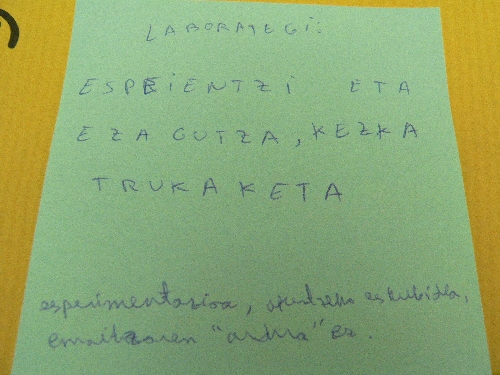 LABORATEGI:
ESPEIENTZI ETA
EZAGUTZA, KEZKA
TRUKAKETA
esperimentazioa, eskubidea,
emaitzaren "ardura" ez.